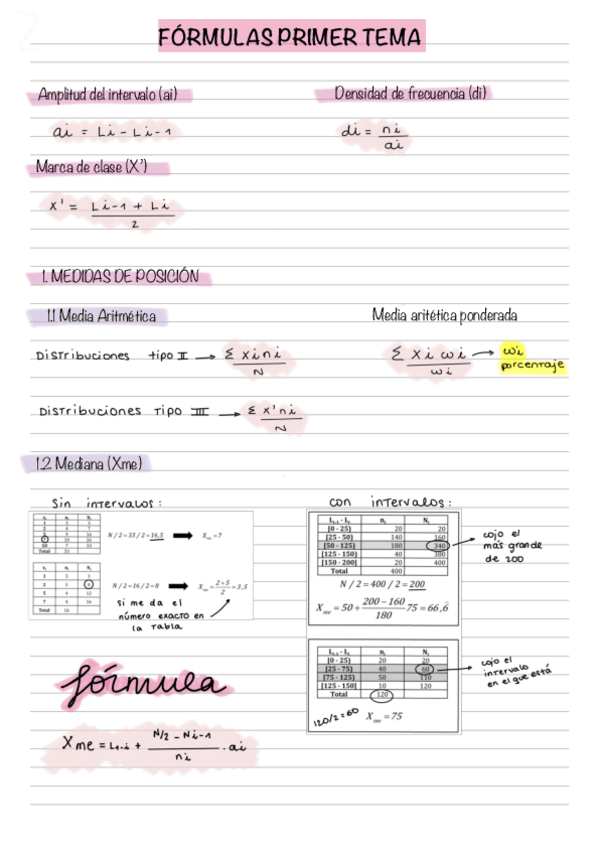 FÓRMULAS PRIMER TEMA
Amplitud del intervalo (ai)
ai = Li - Li-1
Densidad de frecuencia (di)
di = ni / ai
Marca de clase (X')
X' = Li-1 + Li / 2
1. MEDIDAS DE POSICIÓN
1.1 Media Aritmética
Distribuciones tipo II → Σ xini / N
Distribuciones tipo III → Σ x'ni / N
Media aritética ponderada
Σ xiwi / wi → wi
porcentaje
1.2 Mediana (Xme)
Sin intervalos:
N / 2 = 33 / 2 = 16,5
Xme = 7
N / 2 = 16 / 2 = 8
Xme = 2 + 5 / 2 = 3,5
si me da el
número exacto en
la tabla
con intervalos:
Li-1 - Li ni Ni
[0 - 25) 20 20
[25 - 50) 140 160
[50 - 125) 180 340
[125 - 150) 40 380
[150 - 200) 20 400
Total 400
cojo el
más grande
de 200
N / 2 = 400 / 2 = 200
Xme = 50 + 200 - 160 / 180 75 = 66,6
Li-1 - Li ni Ni
[0 - 25) 20 20
[25 - 75) 40 60
[75 - 125) 50 110
[125 - 150) 10 120
Total 120
cojo el
intervalo
en el que está
120/2=60
Xme = 75
fórmula
Xme = L1-i + N/2 - Ni-1 / ni . ai